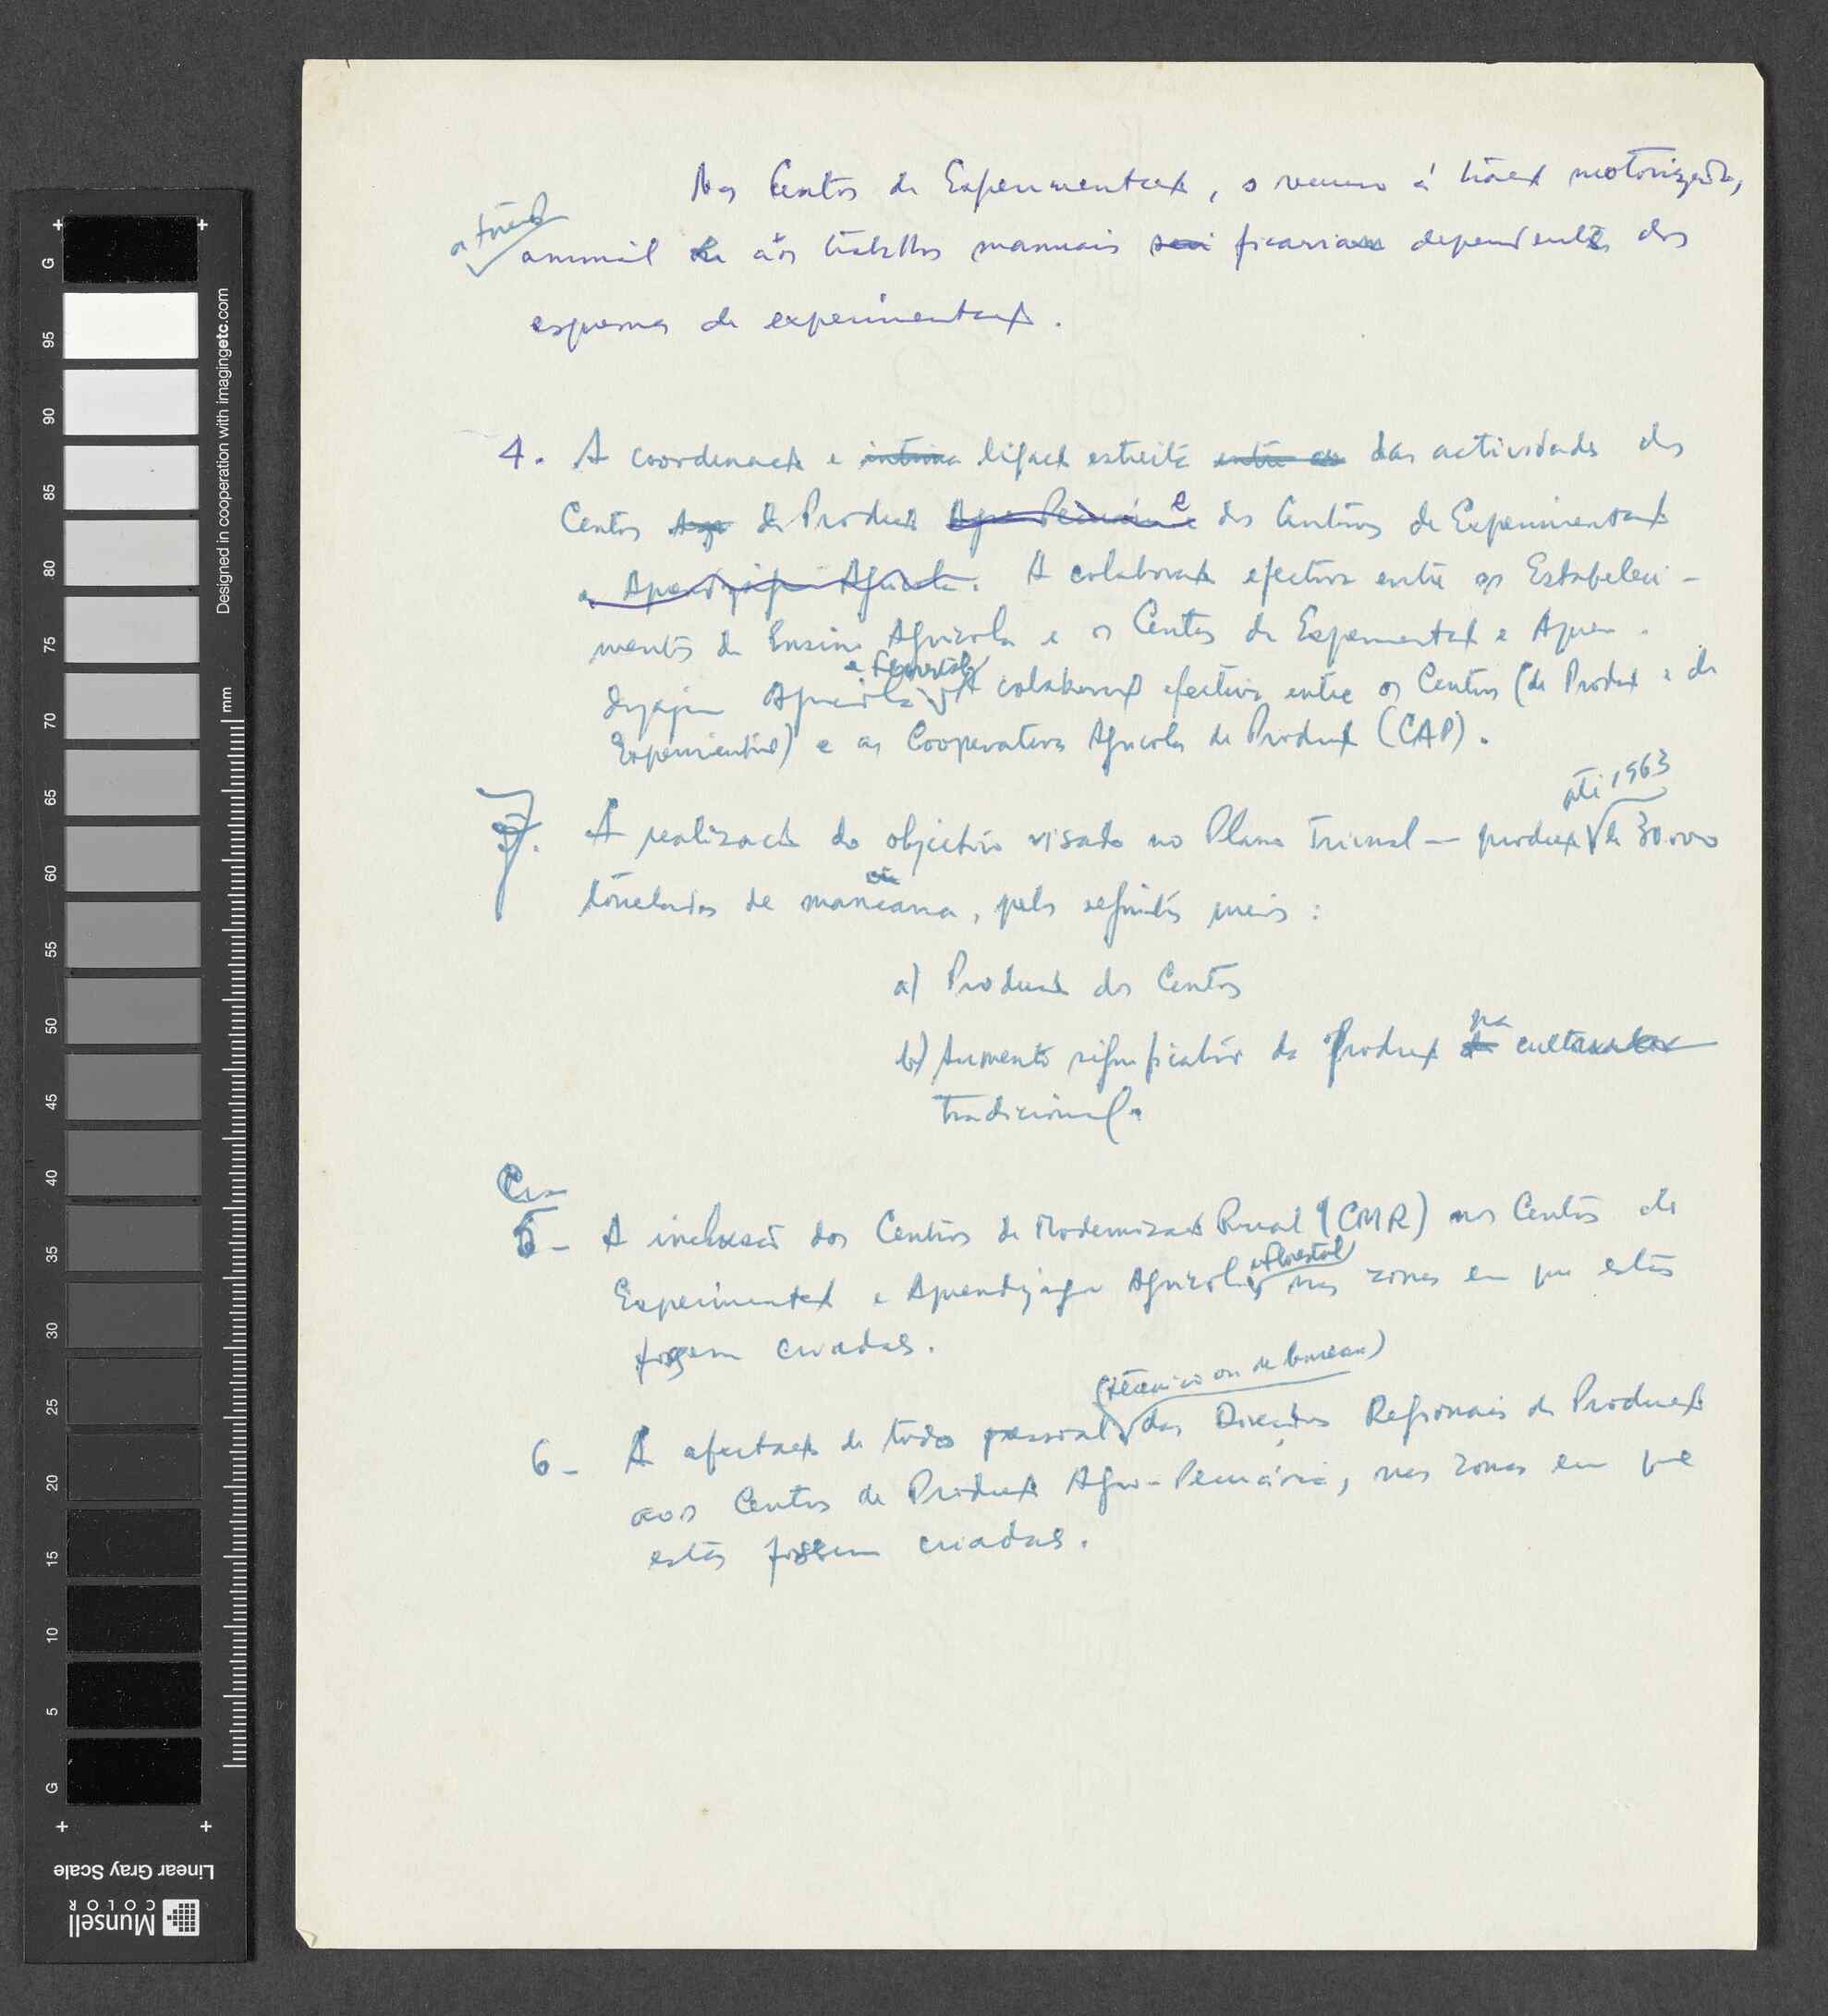 Nos Centros de Experimentação, o recurso à tracção motorizada,
a tracção
animal e aos trabalhos manuais ficariam dependentes dos
esquemas de experimentação.
4. A coordenação e íntima ligação estreita entre as das actividades dos
Centros Agro de Produção Agro-Pecuária e dos Centros de Experimentação
e Aprendizagem Agrícola. A colaboração efectiva entre os Estabeleci-
mentos de Ensino Agrícola e os Centros de Experimentação e Apren-
e Florestal
dizagem Agrícola A colaboração efectiva entre os Centros (de Produção e de
Experimentação) e as Cooperativas Agrícolas de Produção (CAP).
até 1963
7. A realização do objectivo visado no Plano Trienal — produção de 30.000
toneladas de mancarra, pelos seguintes meios:
a) Produção dos Centros
na
b) Aumento significativo da Produção da cultura
tradicional.
5- A inclusão dos Centros de Modernização Rural (CMR) nos Centros de
e florestal
Experimentação e Aprendizagem Agrícola, nas zonas em que estes
fossem criados.
(técnico ou de bureau)
6- A afectação de todo pessoal das Direcções Regionais de Produção
aos Centros de Produção Agro-Pecuária, nas zonas em que
estes fossem criados.
G 95 90 85 80 75 70 65 60 55 50 45 40 35 30 25 20 15 10 5 G
mm
Designed in cooperation with imagingetc.com
Linear Gray Scale
Munsell
COLOR